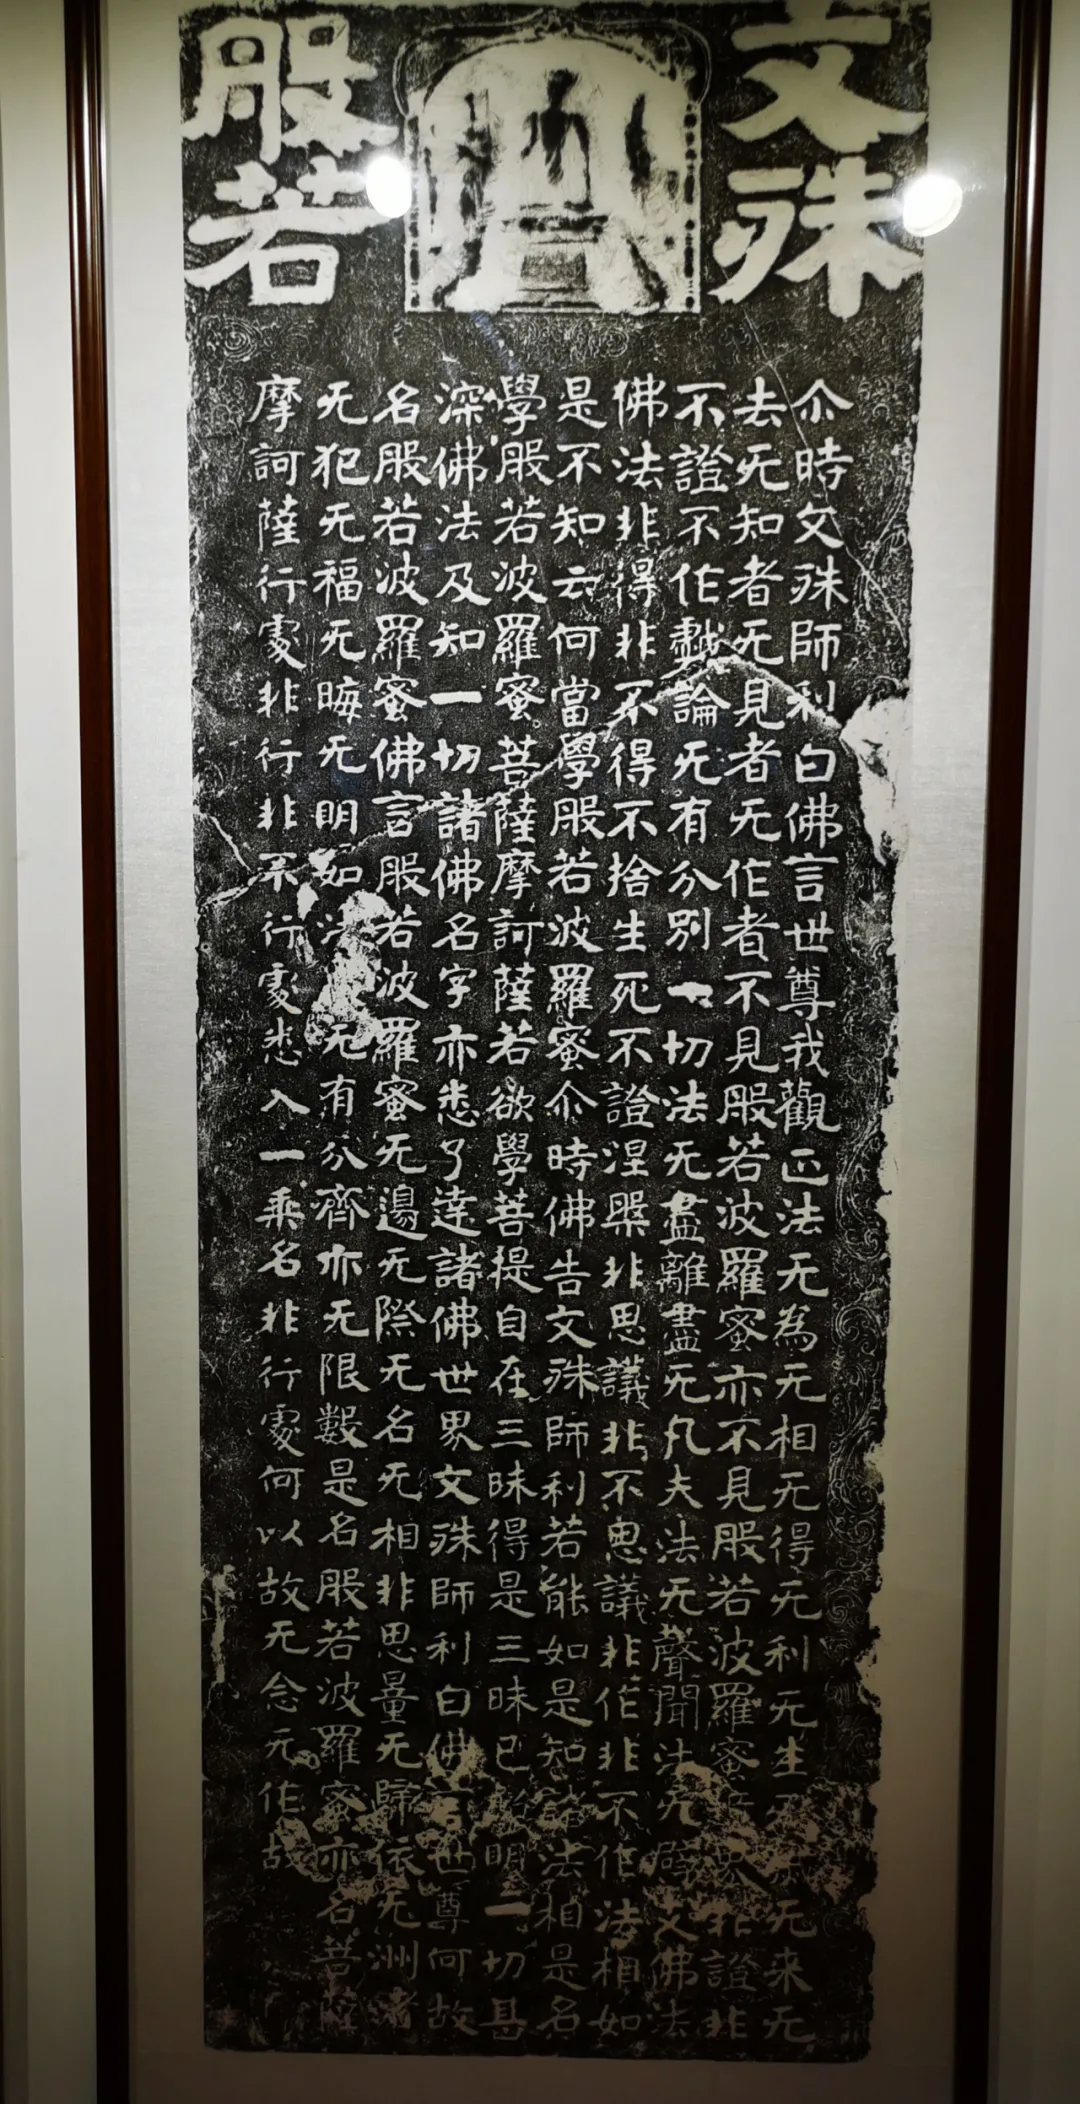 文殊
般若
尒時文殊師利白佛言世尊我觀正法无為无相无得无利无生无来无
去无知者无見者无作者不見般若波羅蜜亦不見般若波羅蜜非證非
不證不作戲論无有分別一切法无盡離盡无凡夫法无聲聞法无辟支佛法
佛法非得非不得不捨生死不證涅槃非思議非不思議非作非不作法相如
是不知云何當學般若波羅蜜尒時佛告文殊師利若能如是知諸法相是名
學般若波羅蜜菩薩摩訶薩若欲學菩提自在三昧得是三昧已明一切甚
深佛法及知一切諸佛名字亦悉了達諸佛世界文殊師利白佛言世尊何故
名般若波羅蜜佛言般若波羅蜜无邊无際无名无相非思量无歸依无洲渚
无犯无福无晦无明如法无有分齊亦无限數是名般若波羅蜜亦名菩薩
摩訶薩行處非行非不行處悉入一乘名非行處何以故无念无作故